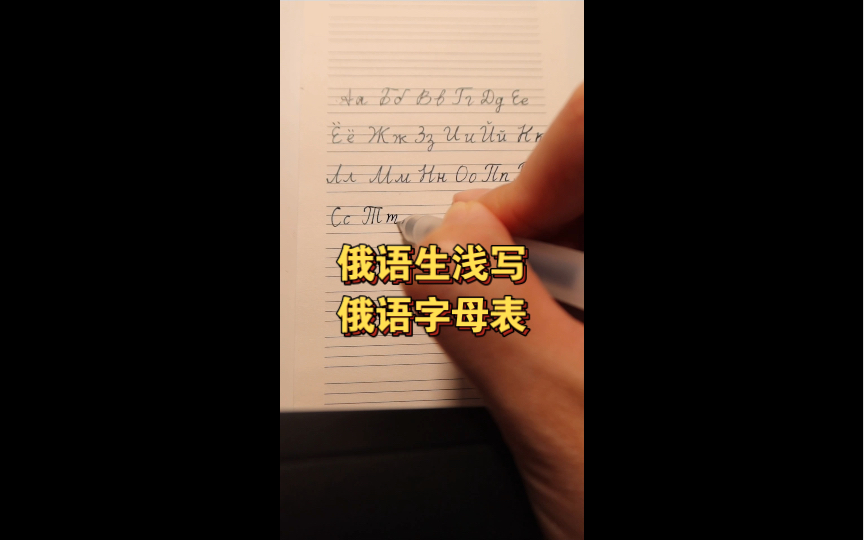 Аа Бб Вв Гг Дд Ее
Ёё Жж Зз Ии Йй Кк
Лл Мм Нн Оо Пп
Сс Тт
俄语生浅写
俄语字母表